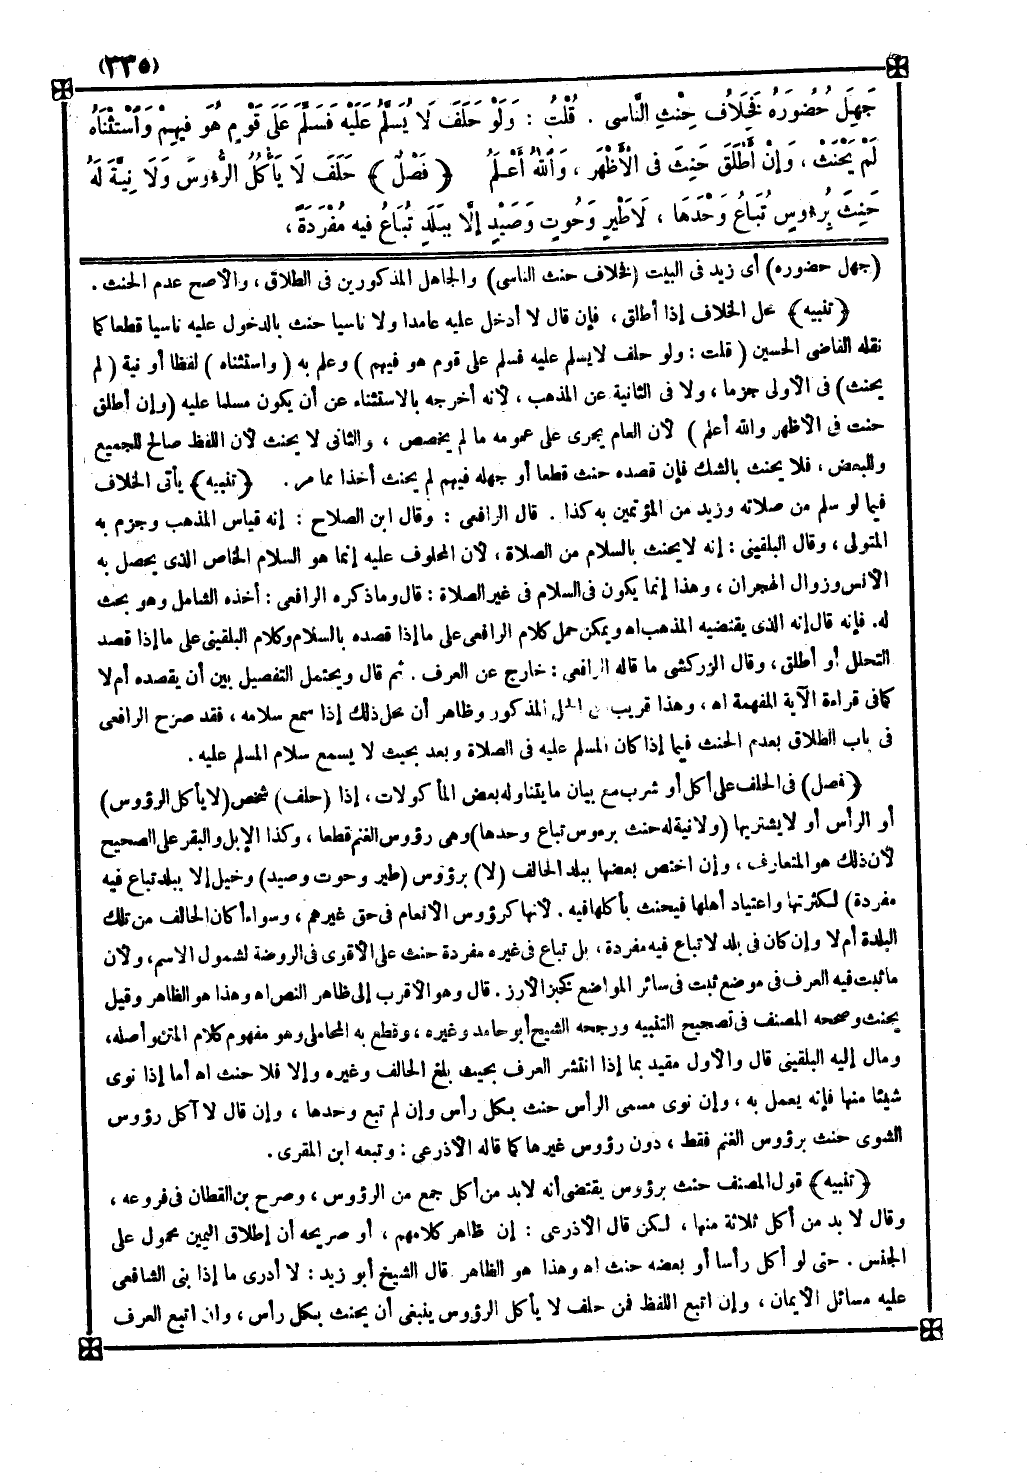 (٣٣٥)
جَهِلَ حُضُورَهُ فَخِلَافُ حِنْثِ النَّاسِى . قُلْتُ : وَلَوْ حَلَفَ لَا يُسَلِّمُ عَلَيْهِ فَسَلَّمَ عَلَى قَوْمٍ هُوَ فِيهِمْ وَاسْتَثْنَاهُ
لَمْ يَحْنَثْ ، وَإِنْ أَطْلَقَ حَنِثَ فى الْأَظْهَرِ ، وَاللّٰهُ أَعْلَمُ ﴿ فَصْلٌ ﴾ حَلَفَ لَا يَأْكُلُ الرُّءُوسَ وَلَا نِيَّةَ لَهُ
حَنِثَ بِرُءُوسٍ تُبَاعُ وَحْدَهَا ، لَا طَيْرٍ وَحُوتٍ وَصَيْدٍ إِلَّا بِبَلَدٍ تُبَاعُ فيه مُفْرَدَةً ،
(جهل حضوره) أى زيد فى البيت (فخلاف حنث الناسى) والجاهل المذكورين فى الطلاق ، والأصح عدم الحنث .
﴿تنبيه﴾ محل الخلاف إذا أطلق ، فإن قال لا أدخل عليه عامدا ولا ناسيا حنث بالدخول عليه ناسيا قطعا كما
نقله القاضى الحسين ( قلت : ولو حلف لا يسلم عليه فسلم على قوم هو فيهم ) وعلم به ( واستثناه ) لفظا أو نية ( لم
يحنث) فى الأولى جزما ، ولا فى الثانية عن المذهب ، لأنه أخرجه بالاستثناء عن أن يكون مسلما عليه (وإن أطلق
حنث فى الأظهر والله أعلم ) لأن العام يجرى على عمومه ما لم يخصص ، والثانى لا يحنث لأن اللفظ صالح للجميع
وللبعض ، فلا يحنث بالشك فإن قصده حنث قطعا أو جهله فيهم لم يحنث أخذا مما مر . ﴿تنبيه﴾ يأتى الخلاف
فيما لو سلم من صلاته وزيد من المؤتمين به كذا . قال الرافعى : وقال ابن الصلاح : إنه قياس المذهب وجزم به
المتولى ، وقال البلقينى : إنه لا يحنث بالسلام من الصلاة ، لأن المحلوف عليه إنما هو السلام الخاص الذى يحصل به
الأنس وزوال الهجران ، وهذا إنما يكون فى السلام فى غير الصلاة : قال وما ذكره الرافعى : أخذه الشامل وهو بحث
له. فإنه قال إنه الذى يقتضيه المذهب اه ويمكن حمل كلام الرافعى على ما إذا قصده بالسلام وكلام البلقينى على ما إذا قصد
التحلل أو أطلق ، وقال الزركشى ما قاله الرافعى : خارج عن العرف . ثم قال ويحتمل التفصيل بين أن يقصده أم لا
كما فى قراءة الآية المفهمة اه ، وهذا قريب من الحمل المذكور وظاهر أن محل ذلك إذا سمع سلامه ، فقد صرح الرافعى
فى باب الطلاق بعدم الحنث فيما إذا كان المسلم عليه فى الصلاة وبعد بحيث لا يسمع سلام المسلم عليه .
﴿فصل) فى الحلف على أكل أو شرب مع بيان ما يتناوله بعض المأكولات ، إذا (حلف) شخص (لا يأكل الرؤوس)
أو الرأس أو لا يشتريها (ولا نية له حنث برءوس تباع وحدها) وهى رؤوس الغنم قطعا ، وكذا الإبل والبقر على الصحيح
لأن ذلك هو المتعارف ، وإن اختص بعضها ببلد الحالف (لا) برؤوس (طير وحوت وصيد) وخيل إلا ببلد تباع فيه
مفردة) لكثرتها واعتياد أهلها فيحنث بأكلها فيه . لأنها كرؤوس الأنعام فى حق غيرهم ، وسواء أكان الحالف من تلك
البلدة أم لا وإن كان فى بلد لا تباع فيه مفردة ، بل تباع فى غيره مفردة حنث على الأقوى فى الروضة لشمول الاسم ، ولأن
ما ثبت فيه العرف فى موضع ثبت فى سائر المواضع كخبز الأرز . قال وهو الأقرب إلى ظاهر النص اه وهذا هو الظاهر وقيل
يحنث وصححه المصنف فى تصحيح التنبيه ورجحه الشيخ أبو حامد وغيره ، وقطع به المحاملى وهو مفهوم كلام المتن وأصله ،
ومال إليه البلقينى قال والأول مقيد بما إذا انتشر العرف بحيث بلغ الحالف وغيره وإلا فلا حنث اه أما إذا نوى
شيئا منها فإنه يعمل به ، وإن نوى مسمى الرأس حنث بكل رأس وإن لم تبع وحدها ، وإن قال لا آكل رؤوس
الشوى حنث برؤوس الغنم فقط ، دون رؤوس غيرها كما قاله الأذرعى : وتبعه ابن المقرى .
﴿تنبيه﴾ قول المصنف حنث برؤوس يقتضى أنه لابد من أكل جمع من الرؤوس ، وصرح بن القطان فى فروعه ،
وقال لا بد من أكل ثلاثة منها ، لكن قال الأذرعى : إن ظاهر كلامهم ، أو صريحه أن إطلاق اليمين محمول على
الجنس . حتى لو أكل رأسا أو بعضه حنث اه وهذا هو الظاهر قال الشيخ أبو زيد : لا أدرى ما إذا بنى الشافعى
عليه مسائل الأيمان ، وإن اتبع اللفظ فمن حلف لا يأكل الرؤوس ينبغى أن يحنث بكل رأس ، وان اتبع العرف